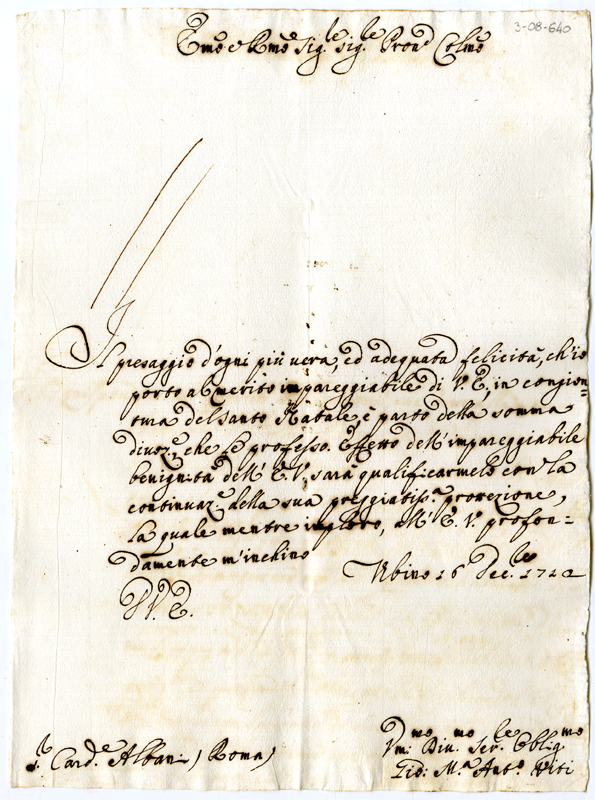 3-08-640
Emo e Rmo Sig.le Sig.le Pron Colmo
Il presaggio d'ogni più vera, ed adequata felicità, ch'io
porto al merito impareggiabile di V. E., in congion-
tura del santo Natale, è parto della somma
divoz.e, che le professo. Effetto dell'impareggiabile
benignità dell'E. V. sarà qualificarmelo con la
continuaz.e della sua preggiatiss.a protezione,
la quale mentre imploro, all'E. V. profon=
damente m'inchino
Urbino 16 Dec.le 1712
D V. E.
S.r Card.e Albani (Roma)
Vmo Div.mo Ser.le Obligmo
Gio: M.a Ant.o Viti